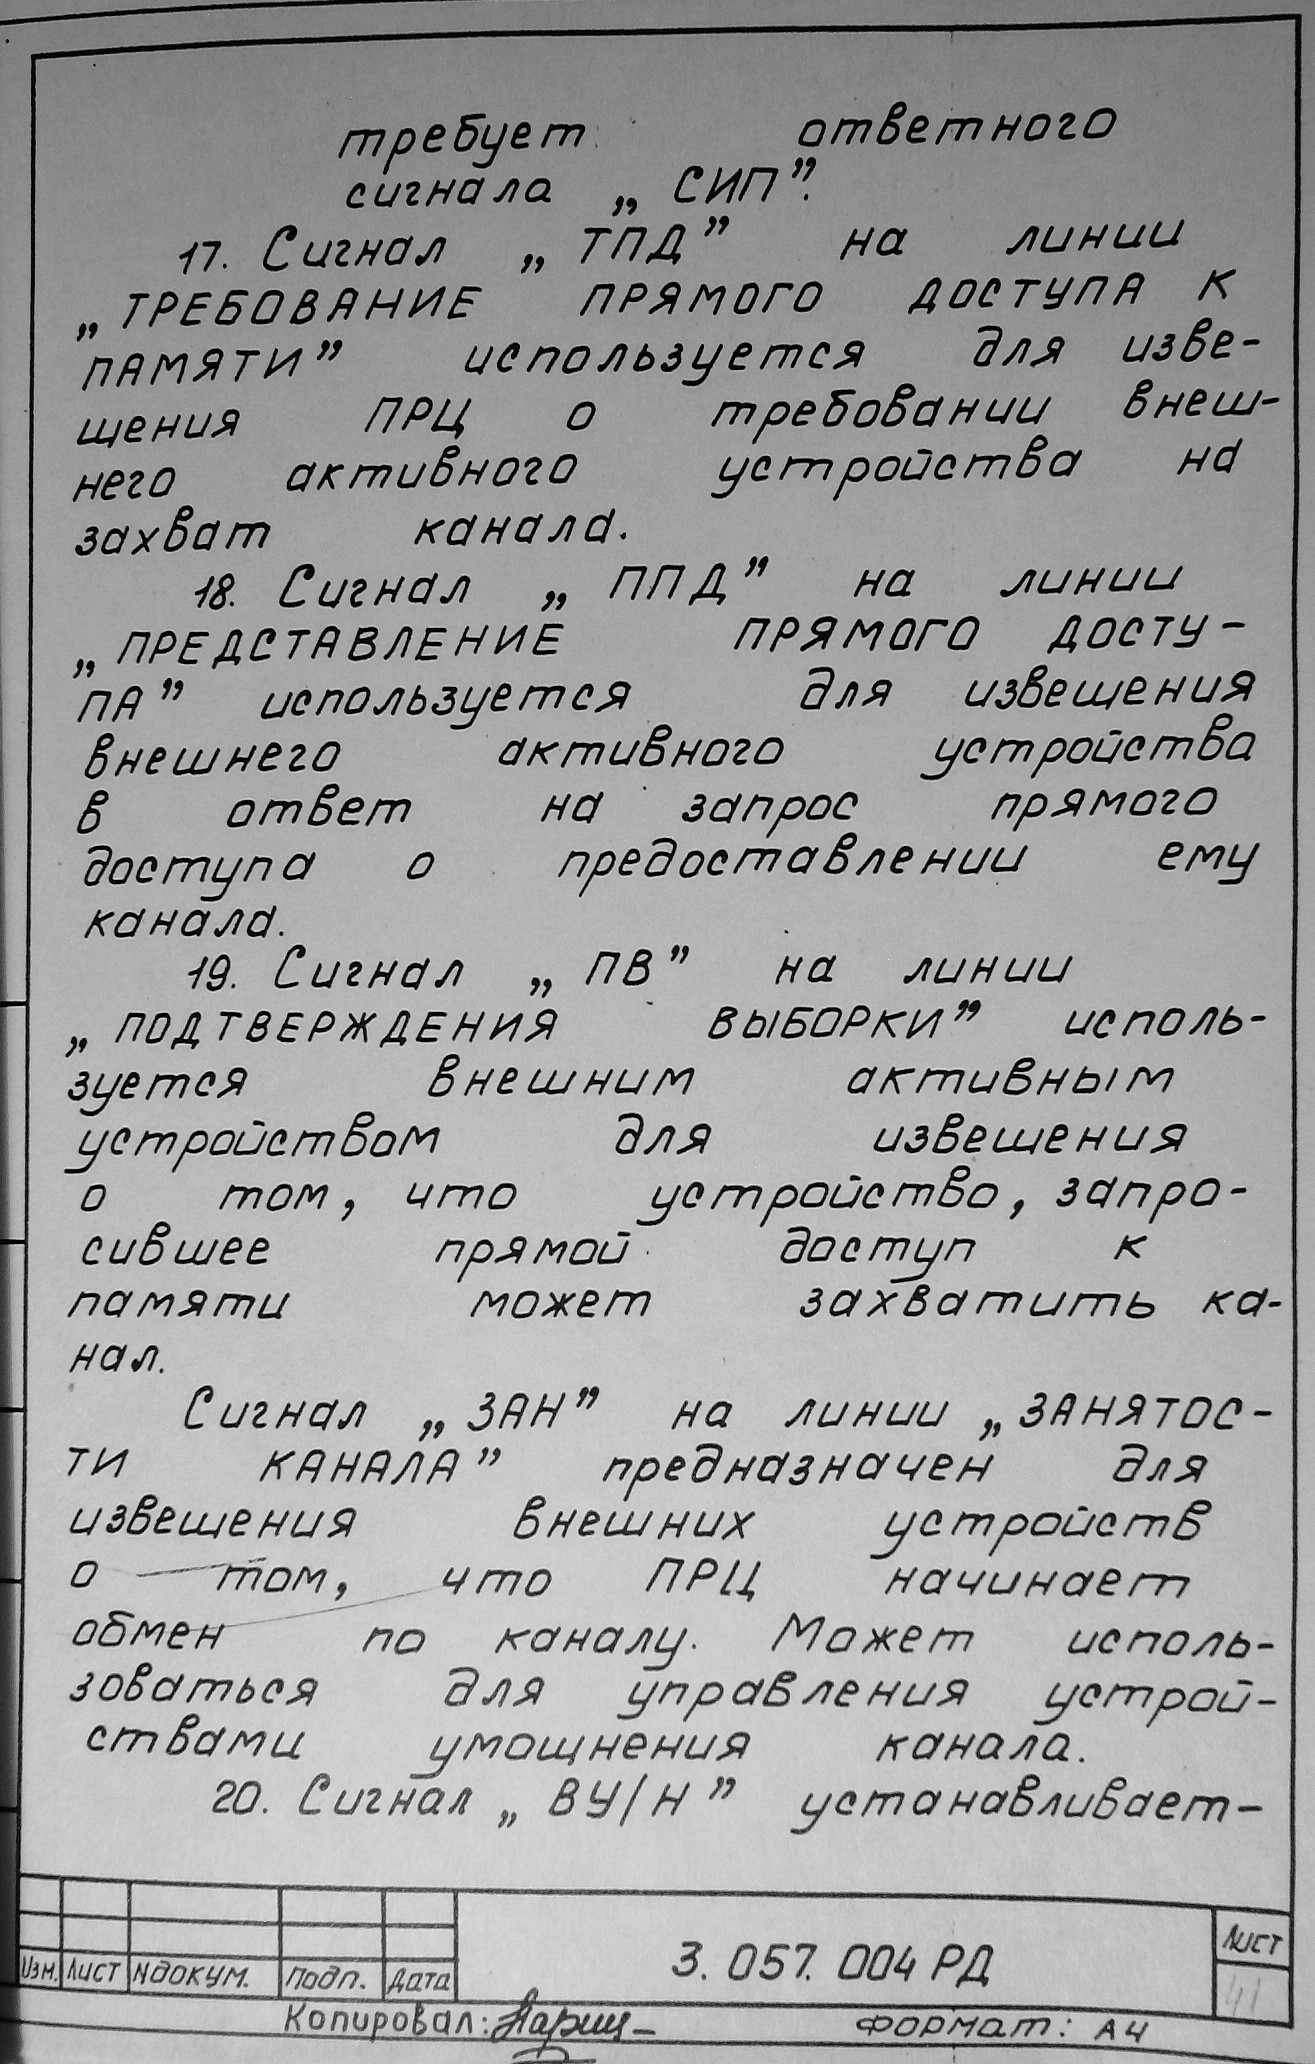 требует ответного
сигнала „СИП”.
17. Сигнал „ТПД” на линии
„ТРЕБОВАНИЕ ПРЯМОГО ДОСТУПА К
ПАМЯТИ” используется для изве-
щения ПРЦ о требовании внеш-
него активного устройства на
захват канала.
18. Сигнал „ППД” на линии
„ПРЕДСТАВЛЕНИЕ ПРЯМОГО ДОСТУ-
ПА” используется для извещения
внешнего активного устройства
в ответ на запрос прямого
доступа о предоставлении ему
канала.
19. Сигнал „ПВ” на линии
„ПОДТВЕРЖДЕНИЯ ВЫБОРКИ” исполь-
зуется внешним активным
устройством для извещения
о том, что устройство, запро-
сившее прямой доступ к
памяти может захватить ка-
нал.
Сигнал „ЗАН” на линии „ЗАНЯТОС-
ТИ КАНАЛА” предназначен для
извещения внешних устройств
о том, что ПРЦ начинает
обмен по каналу. Может исполь-
зоваться для управления устрой-
ствами умощнения канала.
20. Сигнал „ВУ/Н” устанавливает-
Изм. Лист №докум. Подп. Дата
3.057.004 РД
Лист
41
Копировал:
Формат: А4